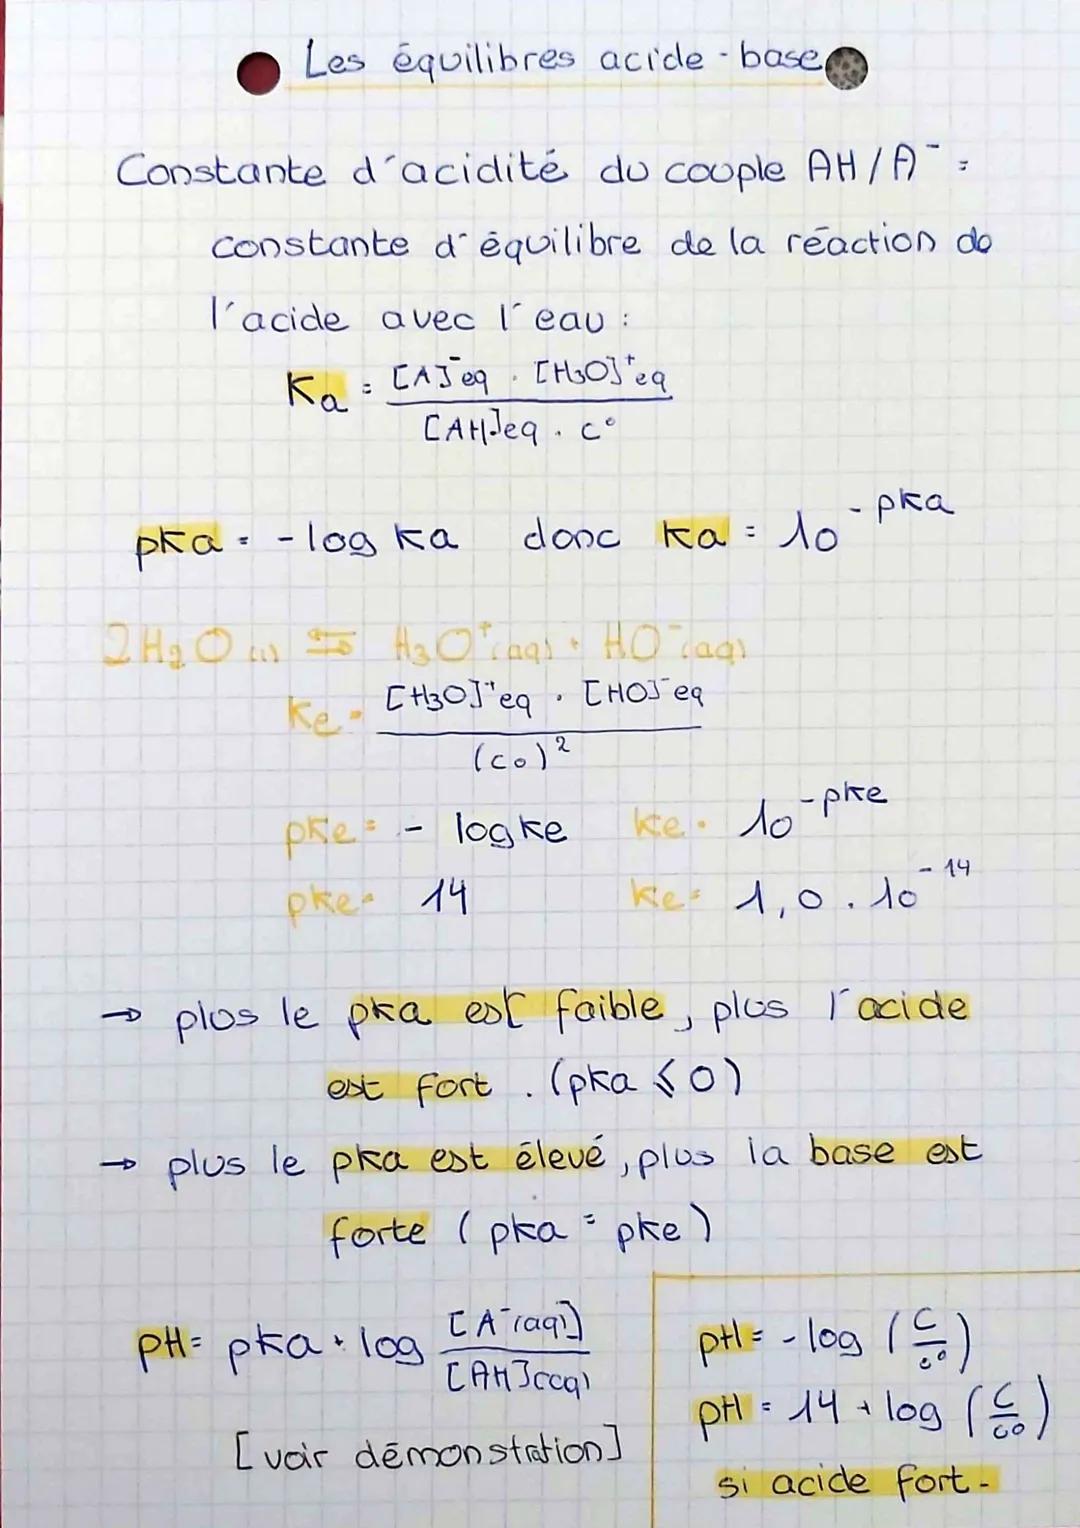 Les équilibres acide-base
Constante d'acidité du couple AH/A⁻ =
constante d'équilibre de la réaction de
l'acide avec l'eau :
Ka = [A]⁻eq . [H₃O]⁺eq
[AH]eq . c°
pKa = -log Ka donc Ka = 10^-pKa
2H₂O(l) ⇆ H₃O⁺(aq) + HO⁻(aq)
Ke = [H₃O]⁺eq . [HO]⁻eq
(co)²
pKe = - log Ke Ke = 10^-pKe
pKe = 14 Ke = 1,0 . 10^-14
→ plus le pKa est faible, plus l'acide
est fort . (pKa ⩽ 0)
→ plus le pKa est élevé, plus la base est
forte (pKa = pKe)
pH = pKa + log [A⁻(aq)]
[AH](aq)
[voir démonstration]
pH = -log (C/c°)
pH = 14 + log (C/co)
si acide fort.